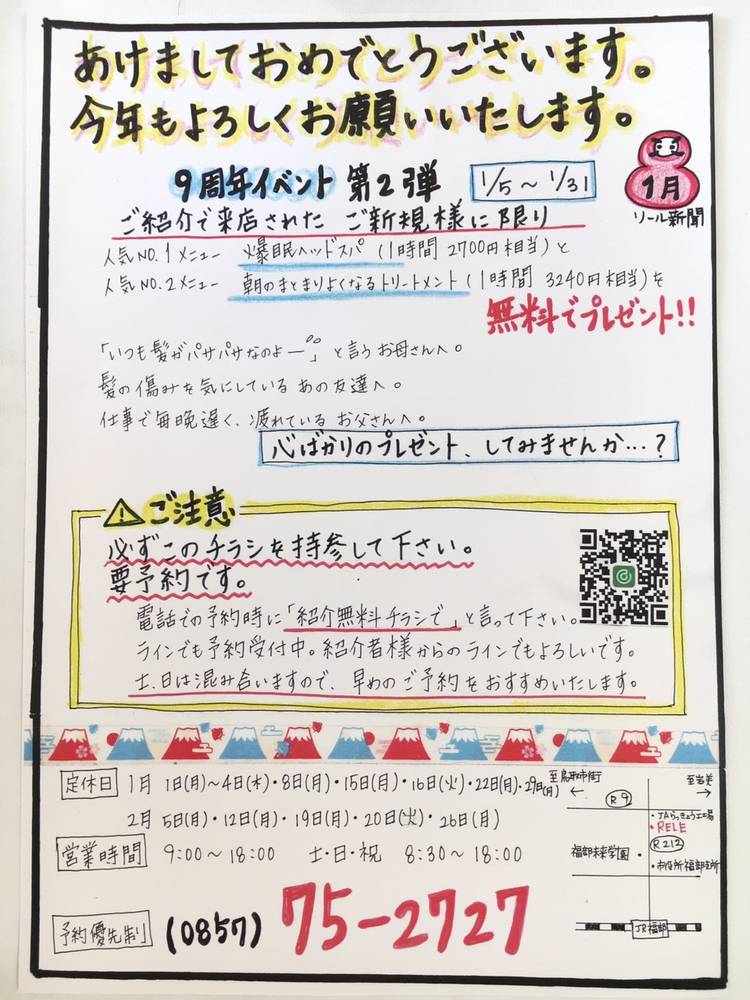 あけましておめでとうございます。
今年もよろしくお願いいたします。
9周年イベント 第2弾
1/5～1/31
1月
リール新聞
ご紹介で来店された ご新規様に限り
人気NO.1メニュー 爆眠ヘッドスパ(1時間 2700円相当)と
人気NO.2メニュー 朝のまとまりよくなるトリートメント(1時間 3240円相当)を
無料でプレゼント!!
「いつも髪がパサパサなのよー」と言うお母さんへ。
髪の傷みを気にしている あの友達へ。
仕事で毎晩遅く、疲れている お父さんへ。
心ばかりのプレゼント、してみませんか…?
ご注意
必ずこのチラシを持参して下さい。
要予約です。
電話での予約時に「紹介無料チラシで」と言って下さい。
ラインでも予約受付中。紹介者様からのラインでもよろしいです。
土、日は混み合いますので、早めのご予約をおすすめいたします。
定休日 1月 1日(月)～4日(木)・8日(月)・15日(月)・16日(火)・22日(月)・29日(月)
2月 5日(月)・12日(月)・19日(月)・20日(火)・26日(月)
営業時間 9:00～18:00 土・日・祝 8:30～18:00
予約優先制 (0857) 75-2727
至鳥取市街
至岩美
R9
・JAらっきょう工場
・RELE
R212
福部未来学園・
・市役所福部支所
JR福部